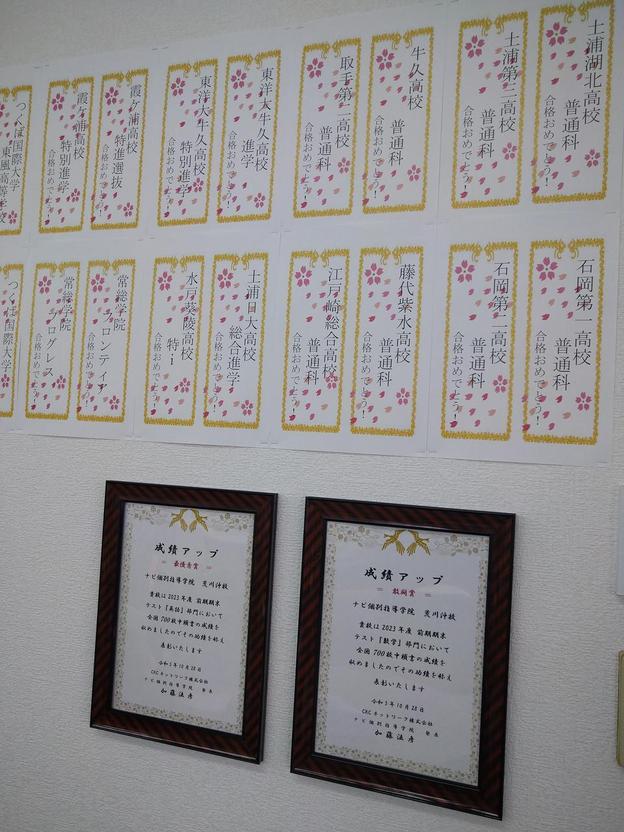 土浦湖北高校
普通科
合格おめでとう!
土浦第二高校
普通科
合格おめでとう!
牛久高校
普通科
合格おめでとう!
取手第二高校
普通科
合格おめでとう!
東洋大牛久高校
進学
合格おめでとう!
東洋大牛久高校
特別進学
合格おめでとう!
霞ヶ浦高校
特進選抜
合格おめでとう!
霞ヶ浦高校
特別進学
合格おめでとう!
つくば国際大学
東風高等学校
石岡第一高校
普通科
合格おめでとう!
石岡第二高校
普通科
合格おめでとう!
藤代紫水高校
普通科
合格おめでとう!
江戸崎総合高校
普通科
合格おめでとう!
土浦日大高校
総合進学
合格おめでとう!
水戸葵陵高校
特・i
合格おめでとう!
常総学院
フロンティア
合格おめでとう!
常総学院
プログレス
合格おめでとう!
つくば国際大学
成績アップ
最優秀賞
ナビ個別指導学院 荒川沖校
貴校は2023年度 前期期末
テスト「英語」部門において
全国700校中頭書の成績を
収めましたのでその功績を称え
表彰いたします
令和5年10月28日
CKCネットワーク株式会社
ナビ個別指導学院 塾長
加藤法彦
成績アップ
敢闘賞
ナビ個別指導学院 荒川沖校
貴校は2023年度 前期期末
テスト「数学」部門において
全国700校中頭書の成績を
収めましたのでその功績を称え
表彰いたします
令和5年10月28日
CKCネットワーク株式会社
ナビ個別指導学院 塾長
加藤法彦